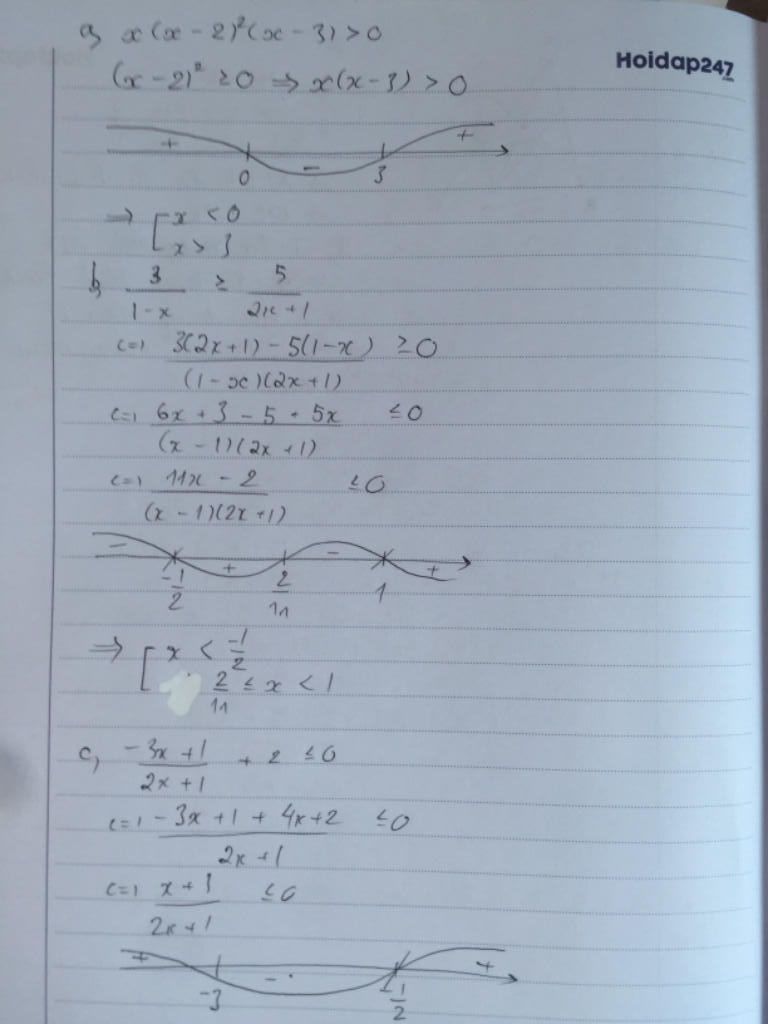 a, x(x-2)²(x-3)>0
Hoidap247
(x-2)² ≥0 => x(x-3) > 0
+ - +
0 3
=> [ x <0
x > 3
b, 3/(1-x) ≥ 5/(2x+1)
<=> (3(2x+1) - 5(1-x))/((1-x)(2x+1)) ≥0
<=> (6x + 3 - 5 + 5x)/((x-1)(2x+1)) ≤0
<=> (11x - 2)/((x-1)(2x+1)) ≤0
- + - +
-1/2 2/11 1
=> [ x < -1/2
2/11 ≤ x < 1
c, (-3x+1)/(2x+1) + 2 ≤0
<=> (-3x+1+4x+2)/(2x+1) ≤0
<=> (x+3)/(2x+1) ≤0
+ - +
-3 -1/2